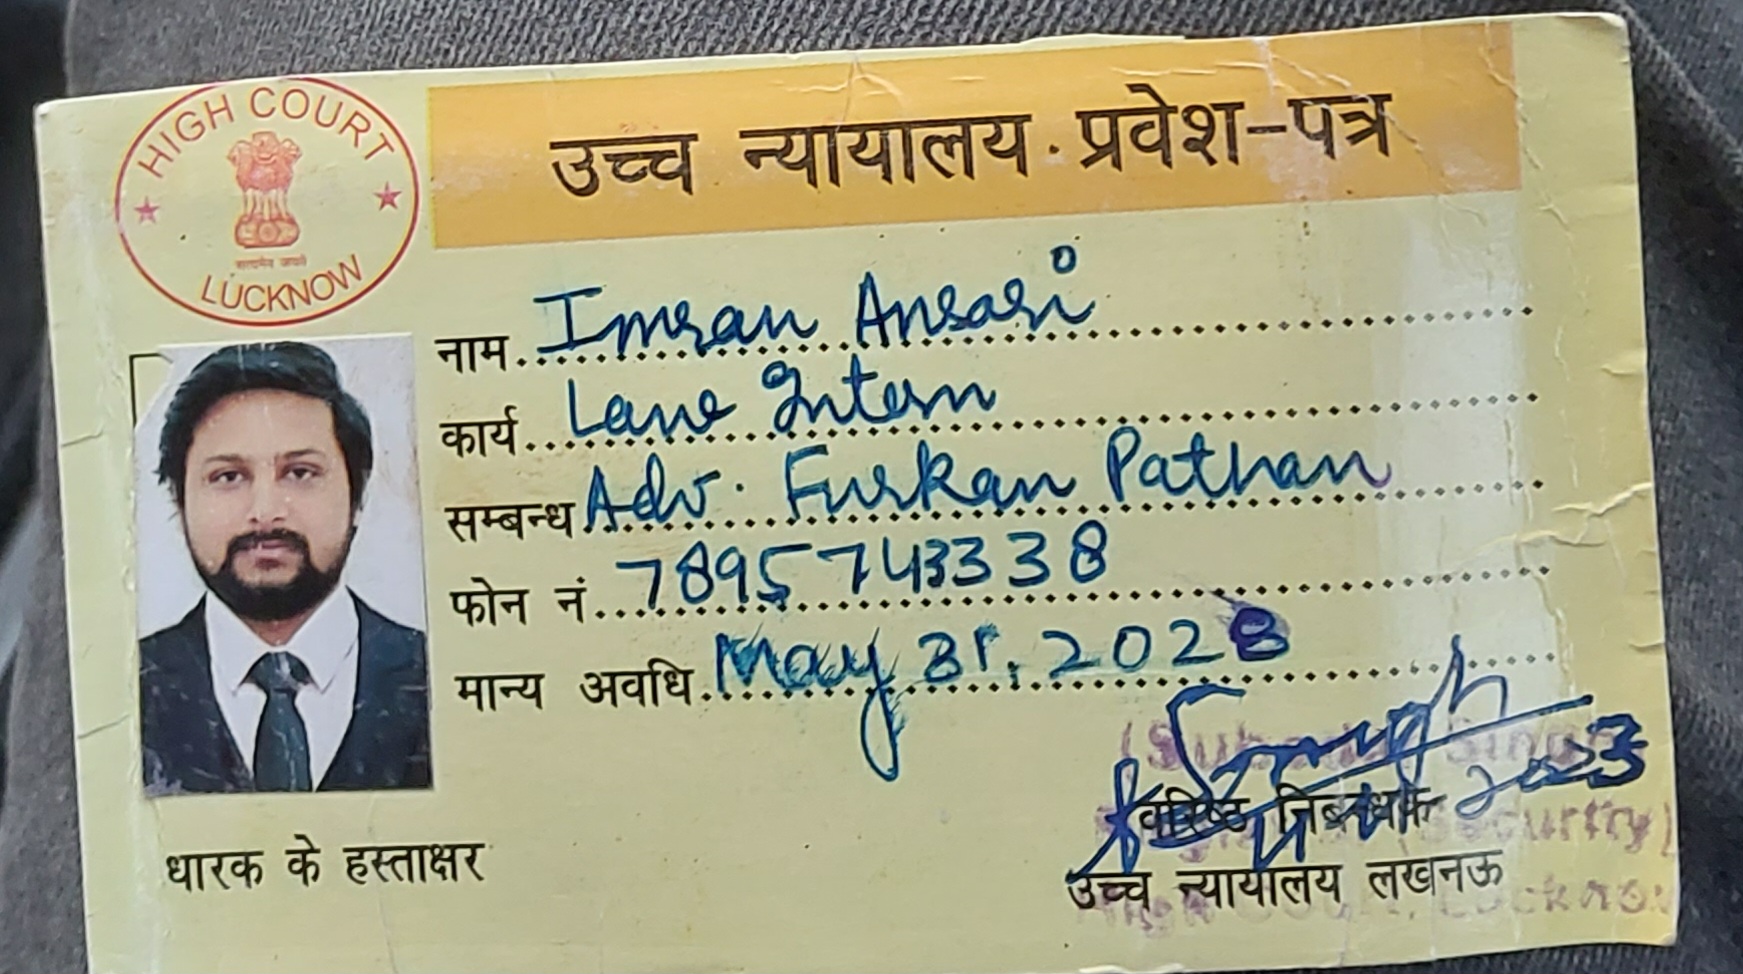 HIGH COURT
LUCKNOW
सत्यमेव जयते
उच्च न्यायालय प्रवेश-पत्र
नाम Imran Ansari
कार्य Law Intern
सम्बन्ध Adv. Furkan Pathan
फोन नं. 7895743338
मान्य अवधि May 31, 2028
2023
धारक के हस्ताक्षर
वरिष्ठ निबन्धक
उच्च न्यायालय लखनऊ